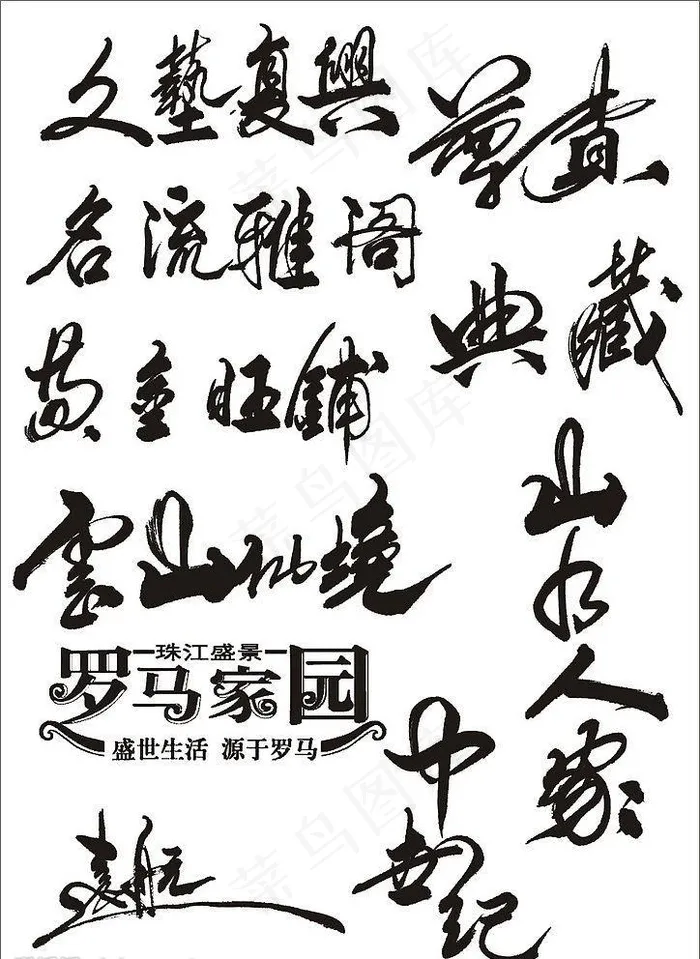 文藝復興
尊貴
名流雅阁
典藏
黄金旺鋪
雲山仙境
山水人家
珠江盛景
罗马家园
盛世生活 源于罗马
中世纪
菜鸟图库